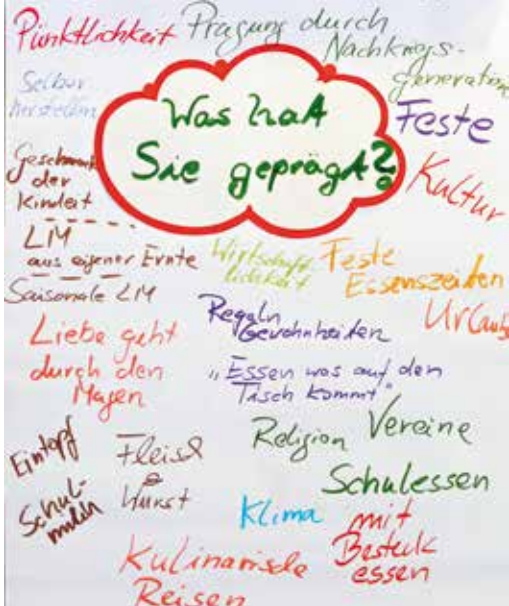 Pünktlichkeit
Prägung durch
Nachkriegs-
generation
Selber
herstellen
Was hat
Sie geprägt?
Feste
Kultur
Geschmack
der
Kindheit
LM
aus eigener Ernte
Saisonale LM
Wirtschaft-
lichkeit
Feste
Essenszeiten
Urlaub
Regeln
Gewohnheiten
Liebe geht
durch den
Magen
"Essen was auf den
Tisch kommt"
Eintopf
Schul-
milch
Fleisch
&
Wurst
Religion
Vereine
Schulessen
Klima
mit
Besteck
essen
Kulinarische
Reisen